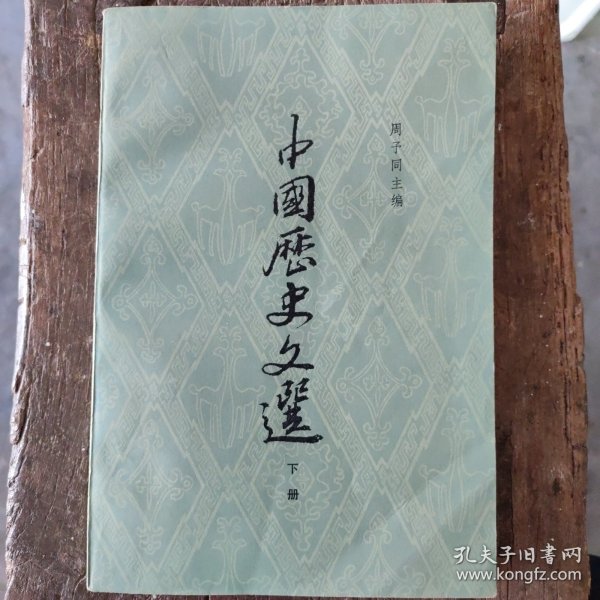 周予同主编
中國歷史文選
下册
孔夫子旧书网
www.kongfz.com